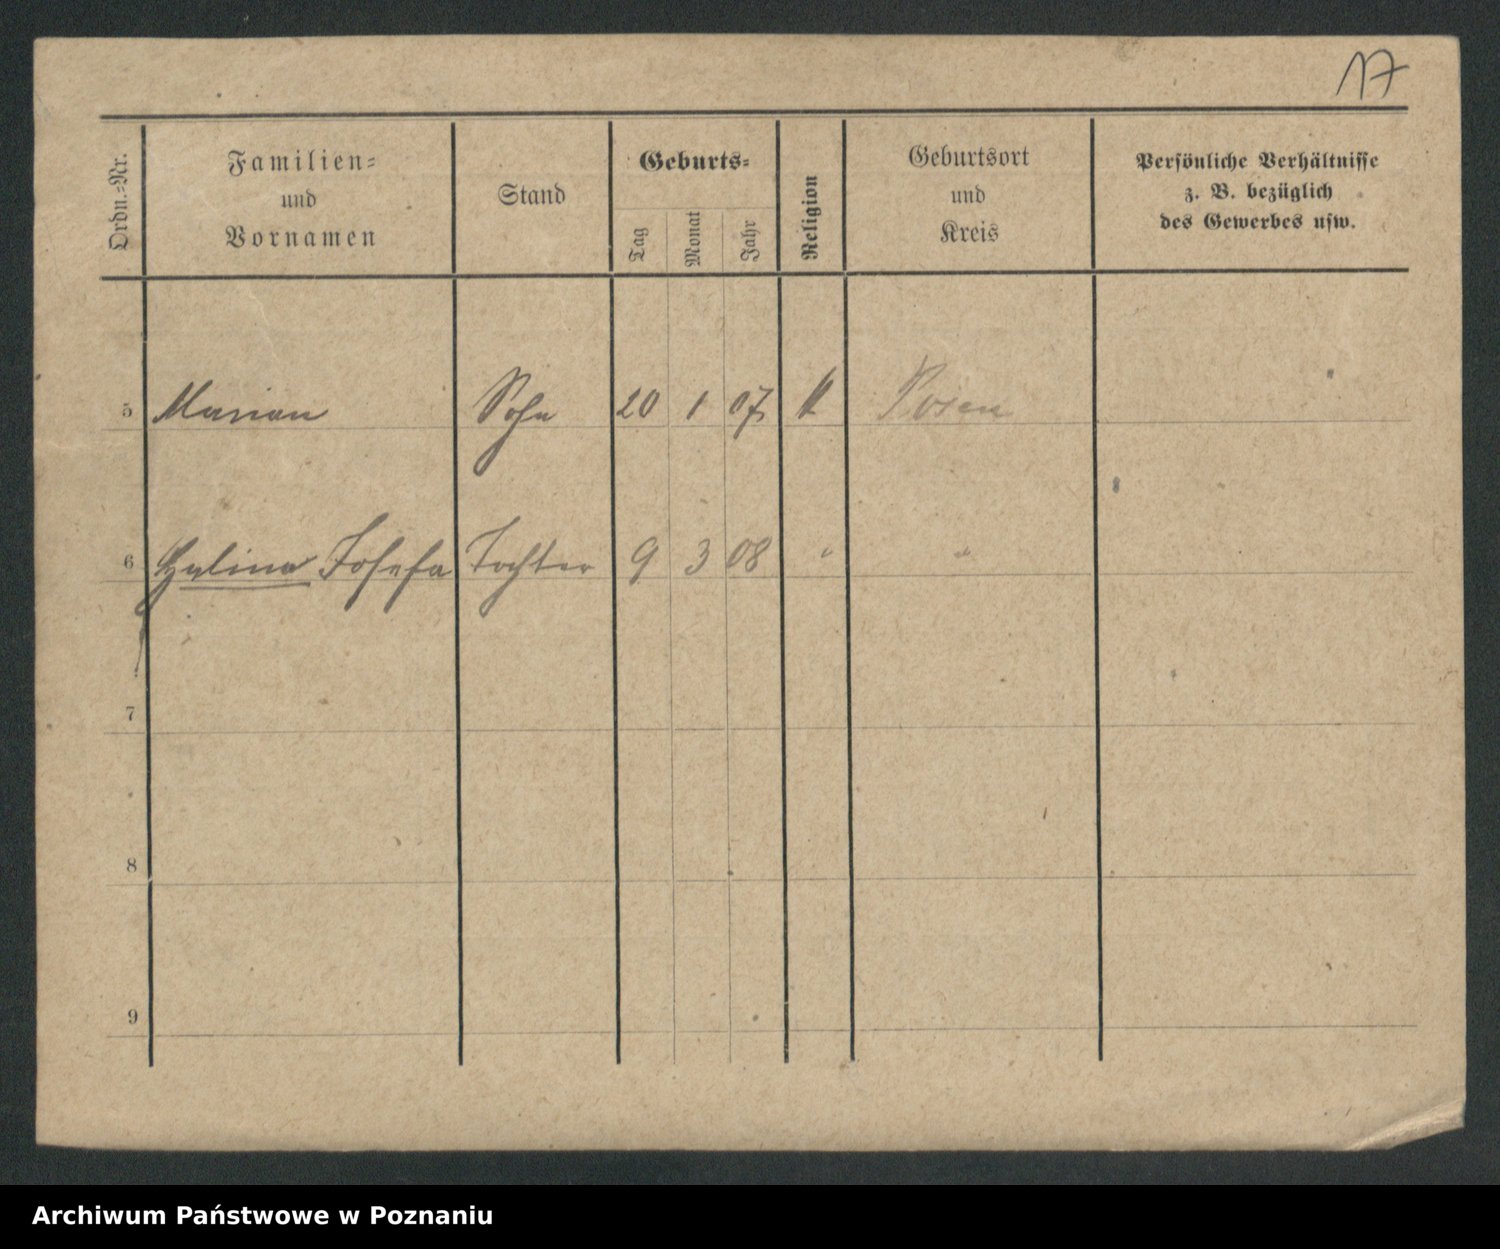 17
Ordn.-Nr.
Familien-
und
Vornamen
Stand
Geburts-
Tag
Monat
Jahr
Religion
Geburtsort
und
Kreis
Persönliche Verhältnisse
z. B. bezüglich
des Gewerbes usw.
5 Marian Sohn 20 1 07 k Posen
6 Halina Josefa Tochter 9 3 08 " "
7
8
9
Archiwum Państwowe w Poznaniu